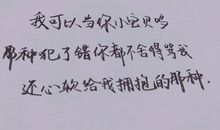 我可以当你小宝贝吗
那种犯了错你都不舍得骂我
还心软给我拥抱的那种.